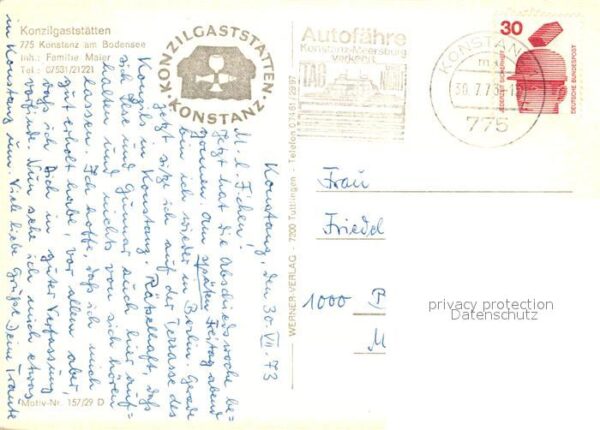 Konzilgaststätten
775 Konstanz am Bodensee
Inh.: Familie Maier
Tel.: 07531/21221
KONZILGASTSTÄTTEN
KONSTANZ
Autofähre
Konstanz-Meersburg
verkehrt
KONSTANZ
30.7.73
775
30
DEUTSCHE BUNDESPOST
Konstanz, den 30. VII. 73
M. l. Fichen!
Jetzt hat die Abschiedswoche be-
gonnen. Am späten Freitag abend
bin ich wieder in Berlin. Gerade
jetzt sitze ich auf der Terrasse des
Konzils in Konstanz. Rätselhaft, daß
sich Ilse und Gunnar auch hier auf-
halten und nichts von sich hören
lassen. Ich hoffe, daß ich mich
gut erholt habe, vor allem aber,
daß ich Dich in guter Verfassung
vorfinde. Nun sehe ich mich etwas
in Konstanz um. Viele liebe Grüße Deine Traute
Motiv-Nr. 157/29 D
WERNER-VERLAG - 7200 Tuttlingen - Telefon 07461/2897
Frau
Friedel
1000
M
privacy protection
Datenschutz